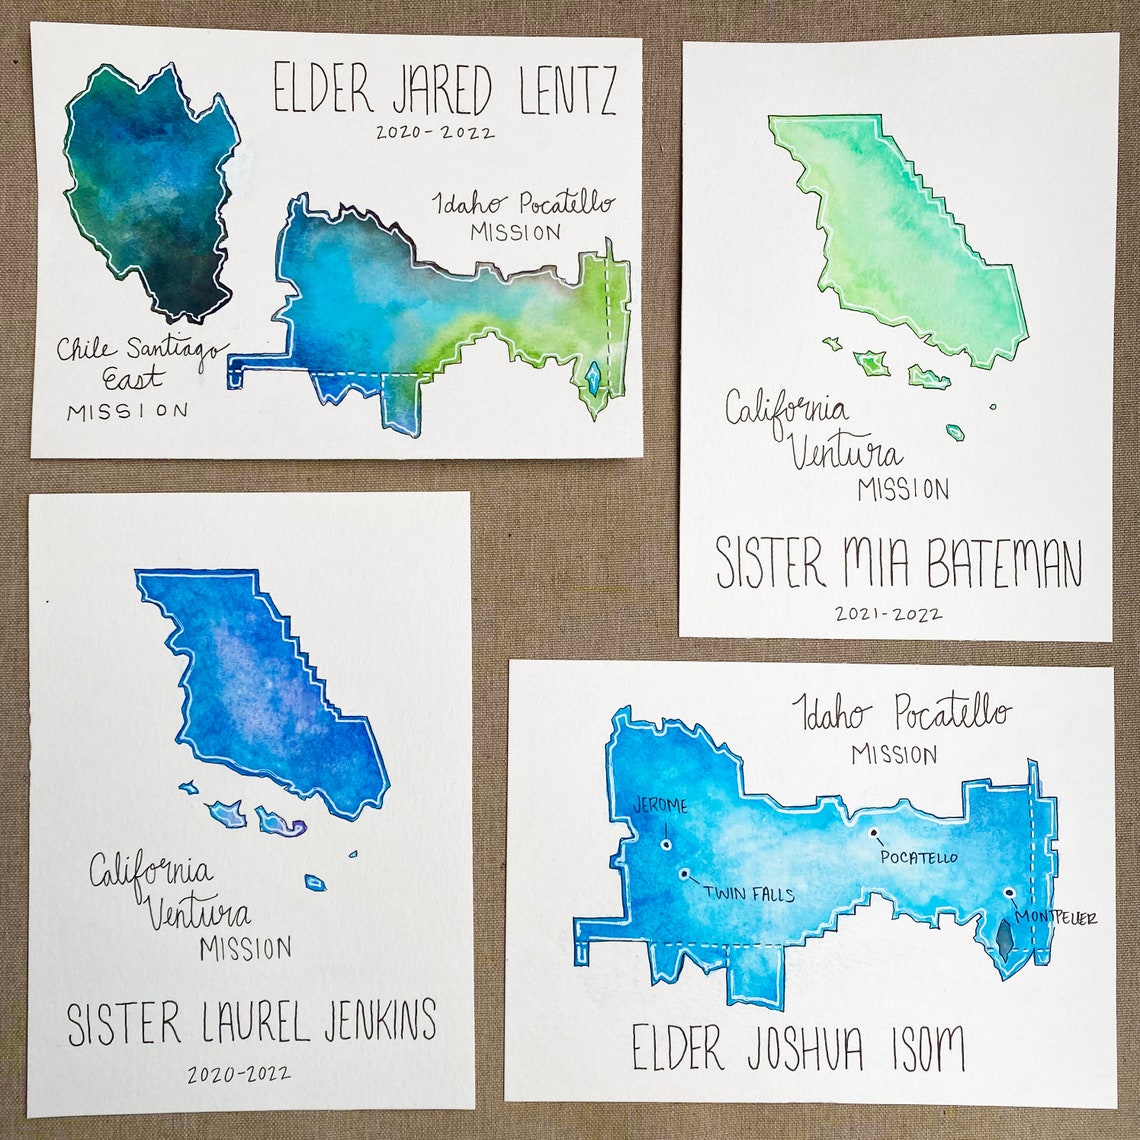 ELDER JARED LENTZ
2020-2022
Idaho Pocatello
MISSION
Chile Santiago
East
MISSION
California
Ventura
MISSION
SISTER MIA BATEMAN
2021-2022
California
Ventura
MISSION
SISTER LAUREL JENKINS
2020-2022
Idaho Pocatello
MISSION
JEROME
POCATELLO
TWIN FALLS
MONTPELIER
ELDER JOSHUA ISOM